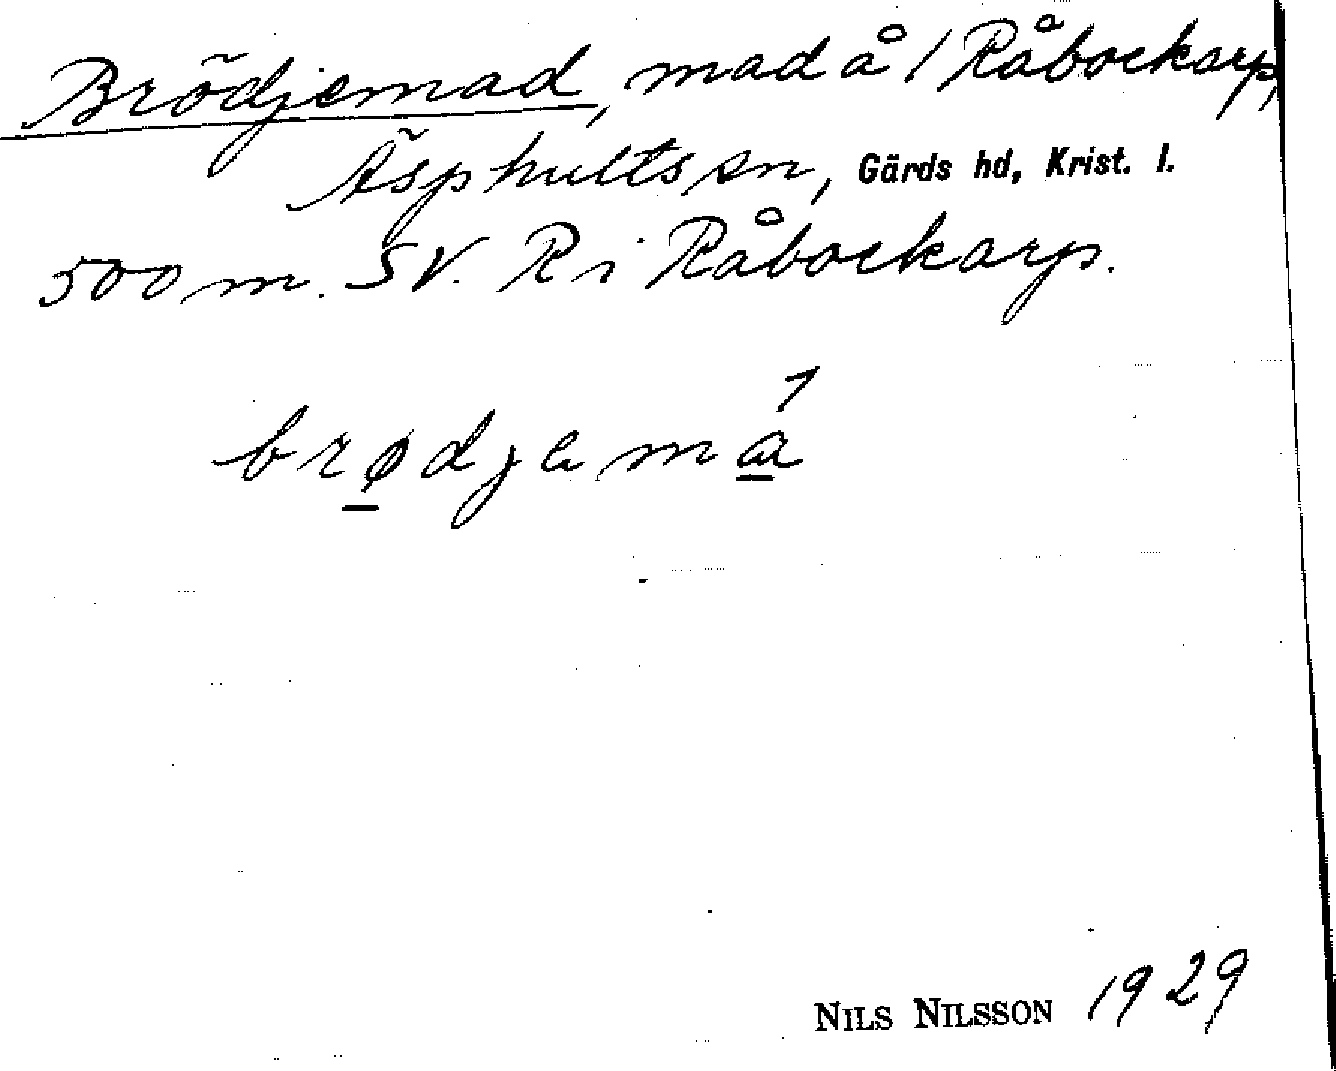 Brödjemad, mad å 1 Råbockarp,
Äsphults sn, Gärds hd, Krist. l.
500 m. SV. R i Råbockarp.
brødjemá
NILS NILSSON 1929